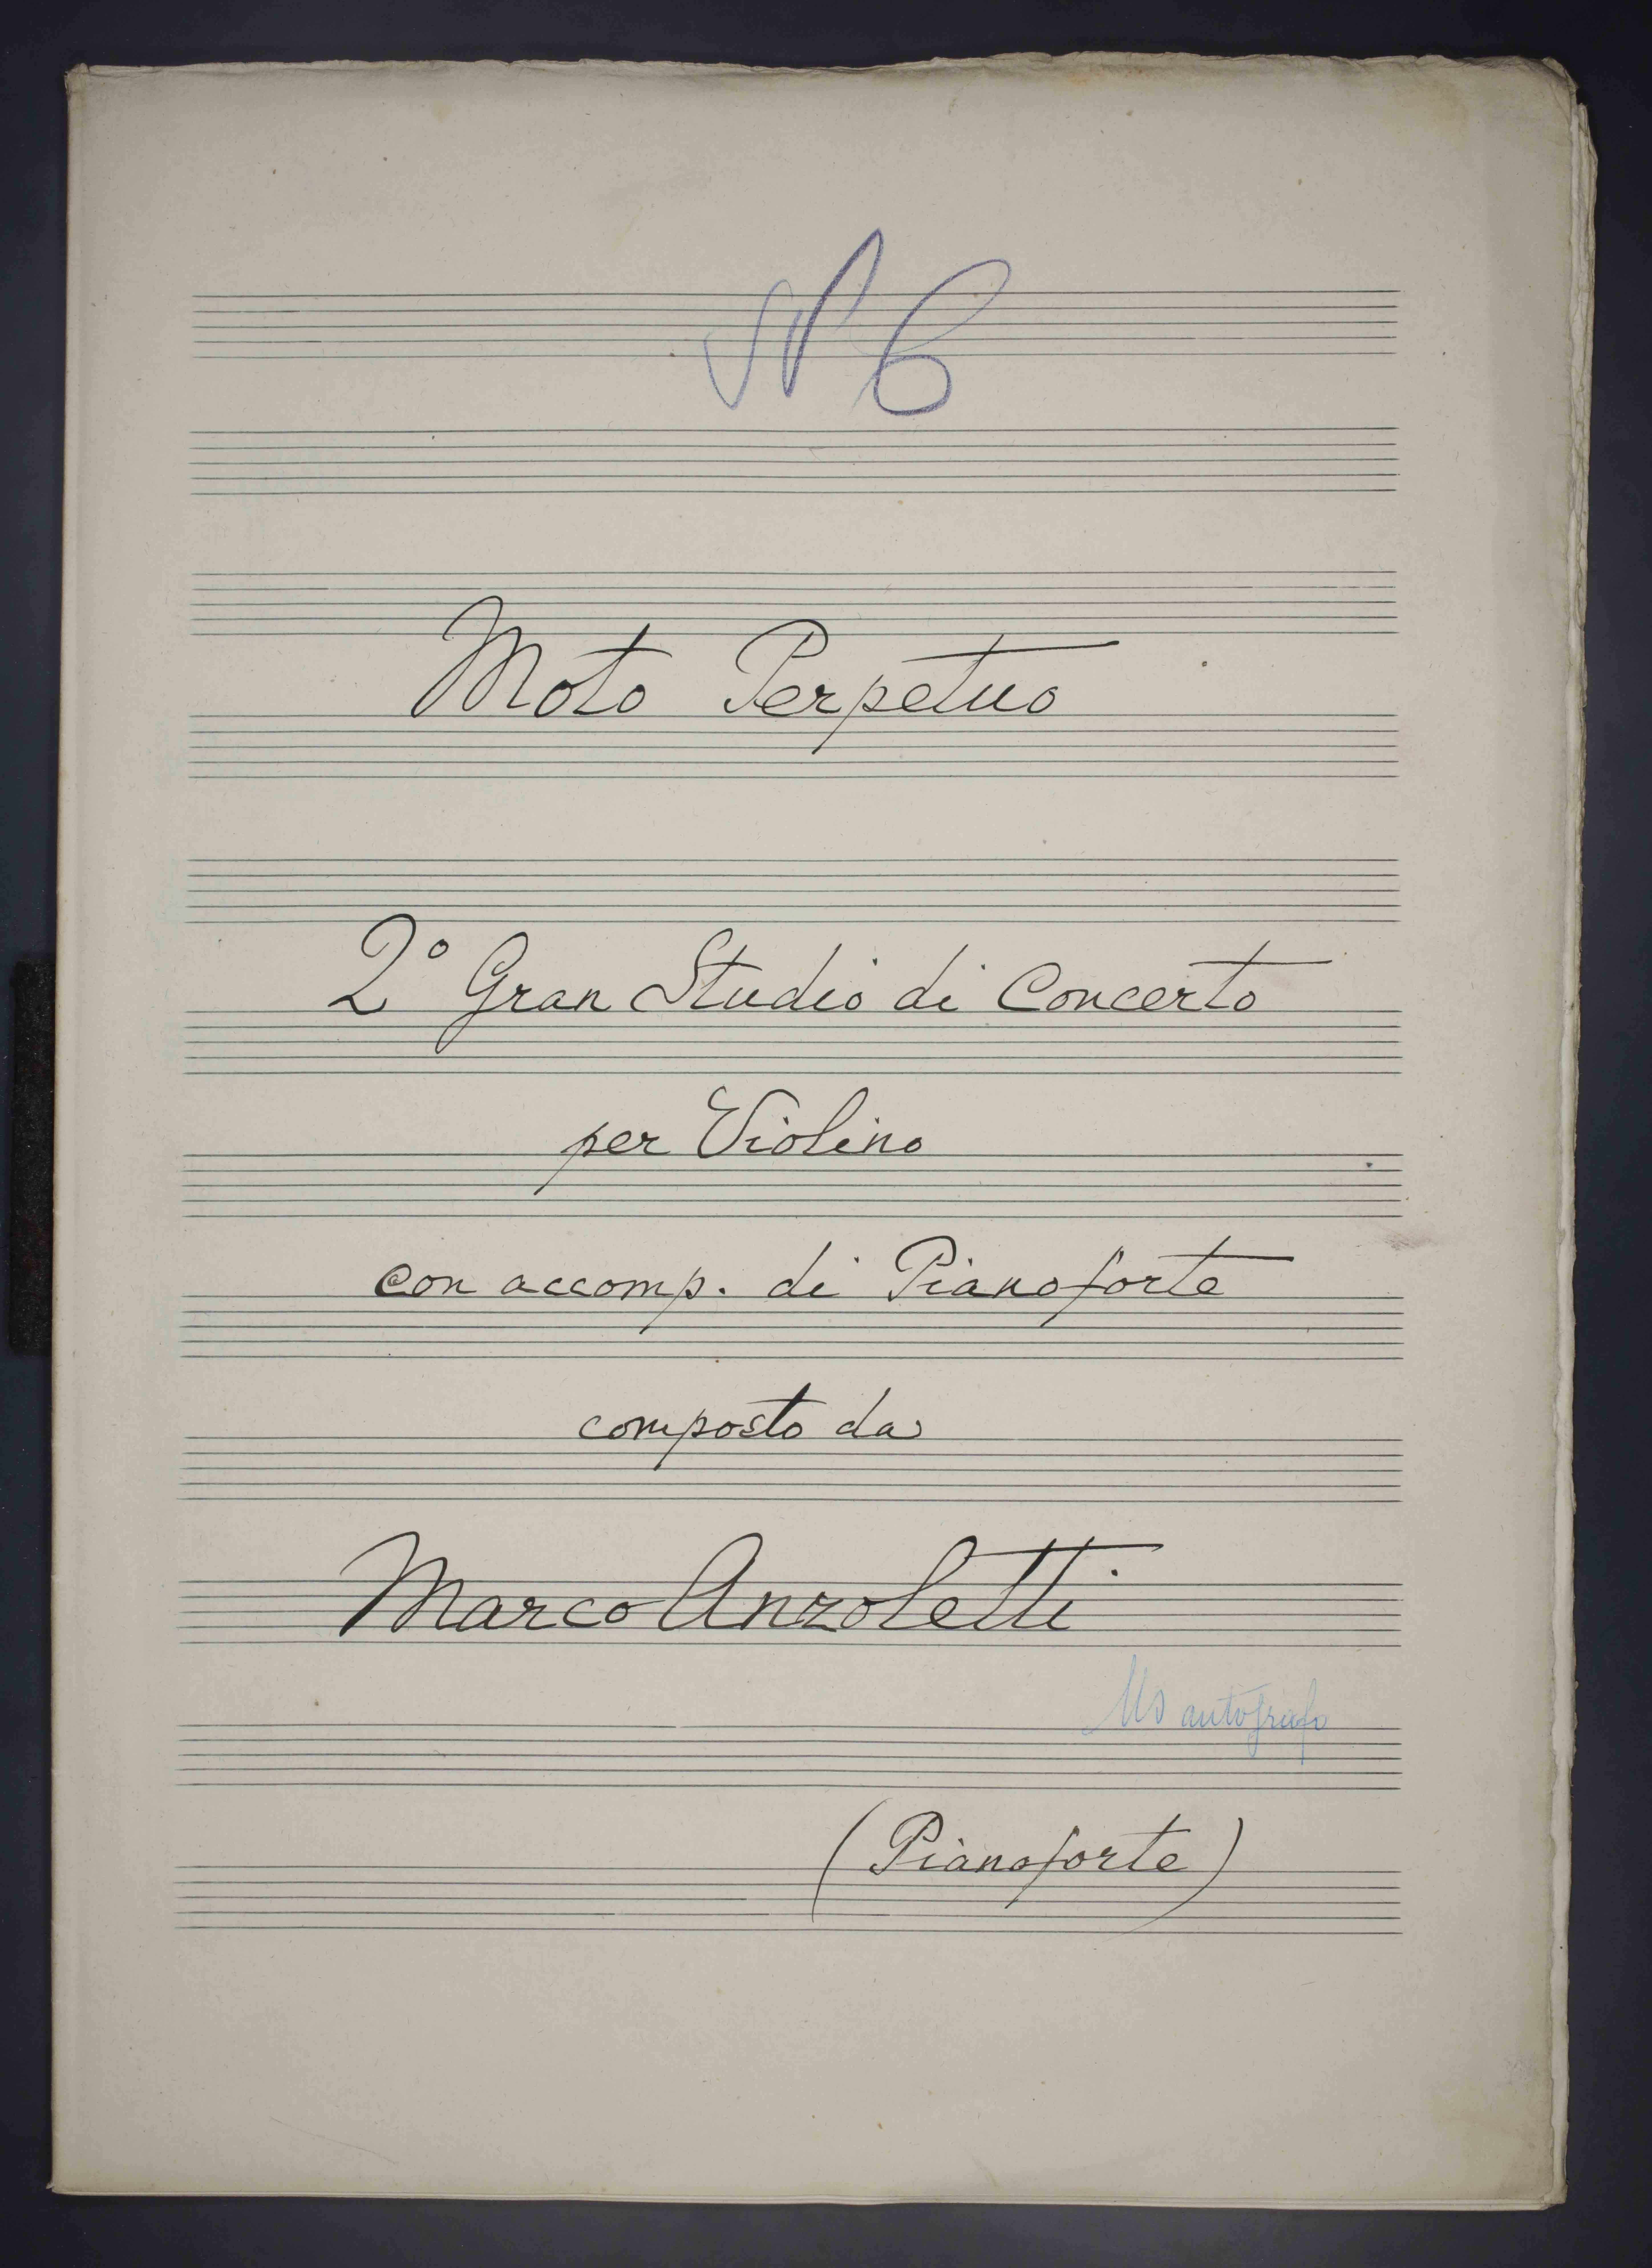 N 6
Moto Perpetuo
2° Gran Studio di Concerto
per Violino
con accomp. di Pianoforte
composto da
Marco Anzoletti
Ms autografo
(Pianoforte)